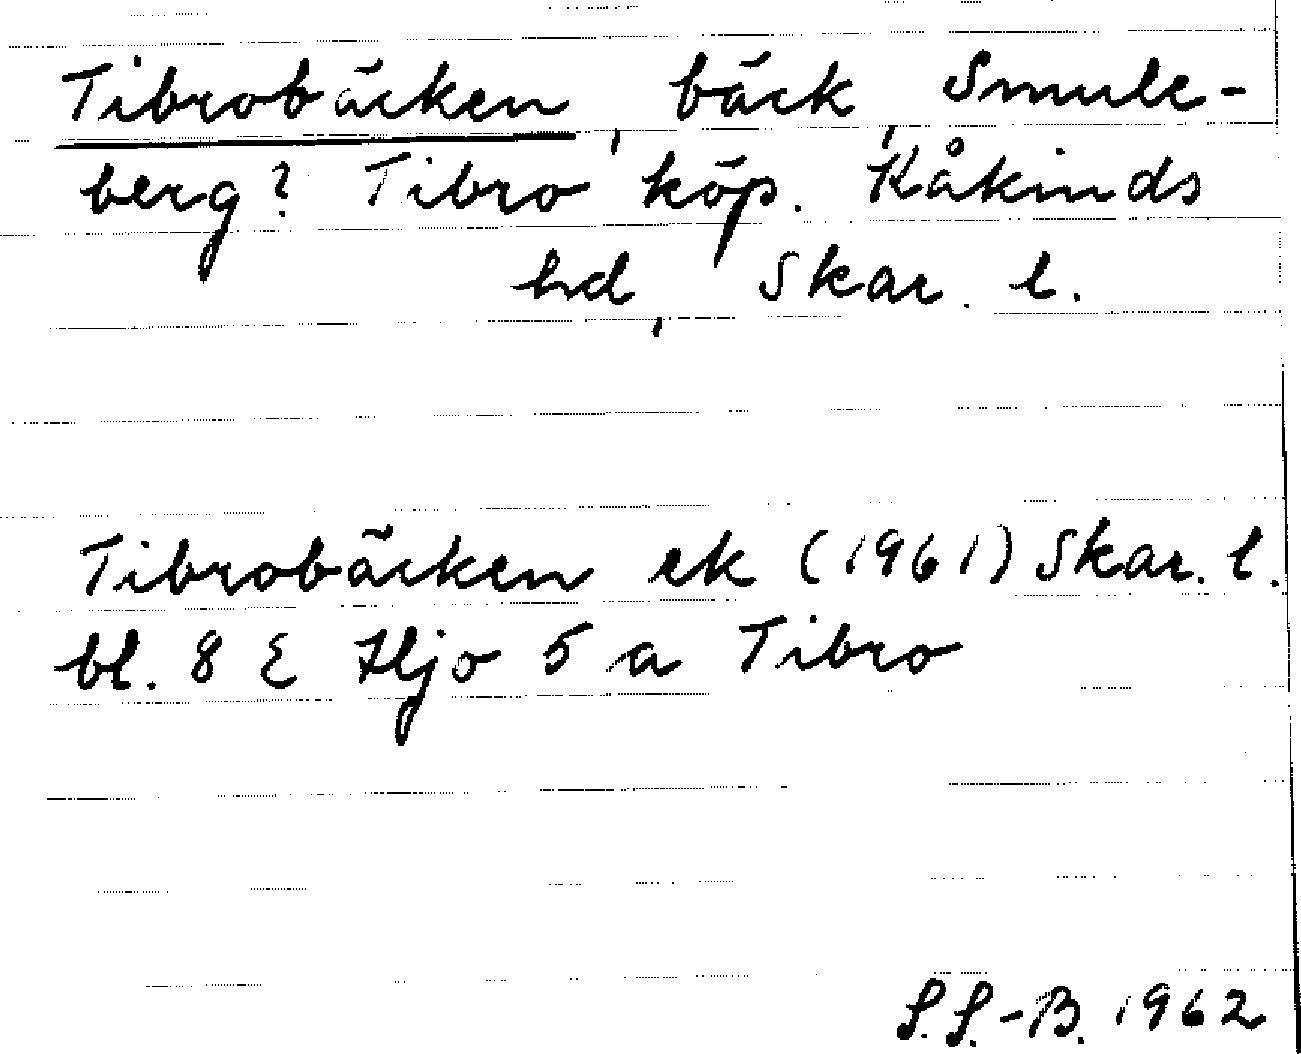 Tibrobäcken, bäck, Smule-
berg? Tibro köp. Kåkinds
hd, Skar. l.
Tibrobäcken ek (1961) Skar. l.
bl. 8 E Hjo 5 a Tibro
S.S.-B. 1962